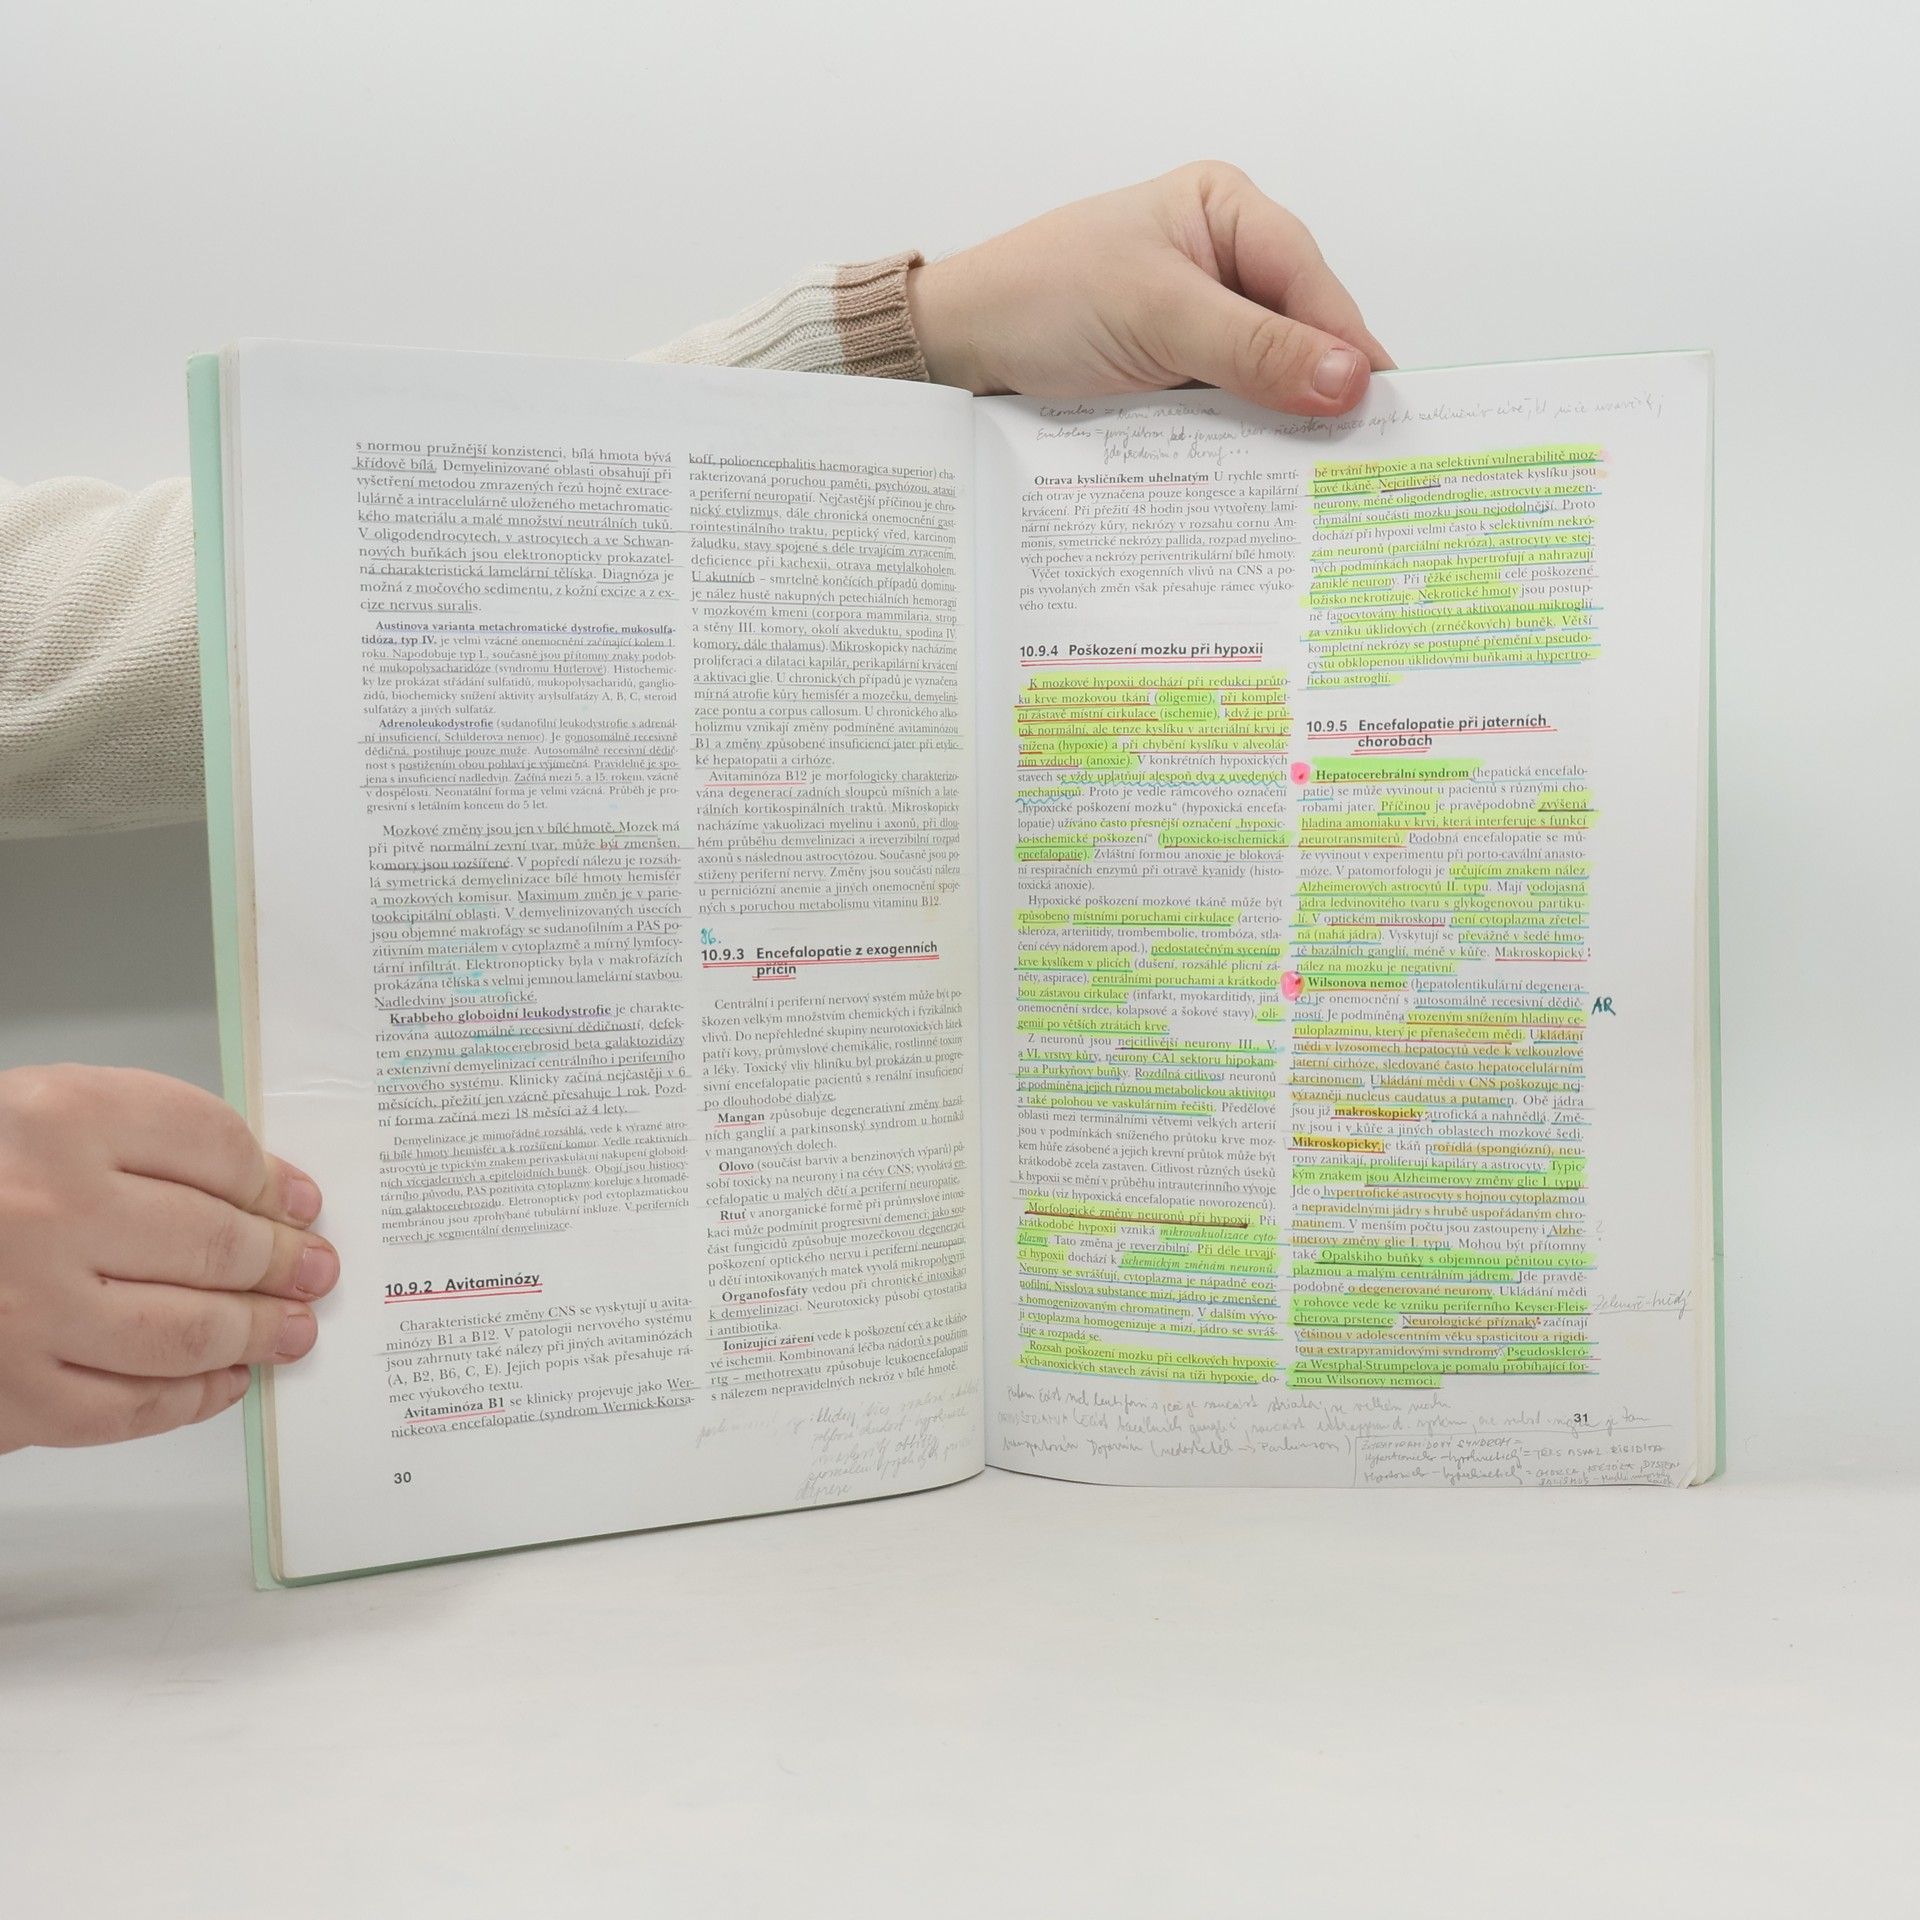 s normou pružnější konzistenci, bílá hmota bývá
křídově bílá. Demyelinizované oblasti obsahují při
vyšetření metodou zmrazených řezů hojně extrace-
lulárně a intracelulárně uloženého metachromatic-
kého materiálu a malé množství neutrálních tuků.
V oligodendrocytech, v astrocytech a ve Schwan-
nových buňkách jsou elektronopticky prokazatel-
ná charakteristická lamelární tělíska. Diagnóza je
možná z močového sedimentu, z kožní excize a z ex-
cize nervus suralis.
Austinova varianta metachromatické dystrofie, mukosulfa-
tidóza, typ IV. je velmi vzácné onemocnění začínající kolem 1.
roku. Napodobuje typ I., současně jsou přítomny znaky podob-
né mukopolysacharidóze (syndromu Hurlerové). Histochemic-
ky lze prokázat střádání sulfatidů, mukopolysacharidů, ganglio-
zidů, biochemicky snížení aktivity arylsulfatázy A, B, C, steroid
sulfatázy a jiných sulfatáz.
Adrenoleukodystrofie (sudanofilní leukodystrofie s adrenál-
ní insuficiencí, Schilderova nemoc). Je gonosomálně recesivně
dědičná, postihuje pouze muže. Autosomálně recesivní dědič-
nost s postižením obou pohlaví je výjimečná. Pravidelně je spo-
jena s insuficiencí nadledvin. Začíná mezi 5. a 15. rokem, vzácně
v dospělosti. Neonatální forma je velmi vzácná. Průběh je pro-
gresivní s letálním koncem do 5 let.
Mozkové změny jsou jen v bílé hmotě. Mozek má
při pitvě normální zevní tvar, může být zmenšen,
komory jsou rozšířené. V popředí nálezu je rozsáh-
lá symetrická demyelinizace bílé hmoty hemisfér
a mozkových komisur. Maximum změn je v parie-
tookcipitální oblasti. V demyelinizovaných úsecích
jsou objemné makrofágy se sudanofilním a PAS po-
zitivním materiálem v cytoplazmě a mírný lymfocy-
tární infiltrát. Elektronopticky byla v makrofázích
prokázána tělíska s velmi jemnou lamelární stavbou.
Nadledviny jsou atrofické.
Krabbeho globoidní leukodystrofie je charakte-
rizována autozomálně recesivní dědičností, defek-
tem enzymu galaktocerebrosid beta galaktozidázy
a extenzivní demyelinizací centrálního i periferního
nervového systému. Klinicky začíná nejčastěji v 6
měsících, přežití jen vzácně přesahuje 1 rok. Pozd-
ní forma začíná mezi 18 měsíci až 4 lety.
Demyelinizace je mimořádně rozsáhlá, vede k výrazné atro-
fii bílé hmoty hemisfér a k rozšíření komor. Vedle reaktivních
astrocytů je typickým znakem perivaskulární nakupení globoid-
ních vícejaderných a epiteloidních buněk. Obojí jsou histiocy-
tárního původu, PAS pozitivita cytoplazmy koreluje s hromadě-
ním galaktocerebrozidu. Eletronopticky pod cytoplazmatickou
membránou jsou zprohýbané tubulární inkluze. V periferních
nervech je segmentální demyelinizace.
10.9.2 Avitaminózy
Charakteristické změny CNS se vyskytují u avita-
minózy B1 a B12. V patologii nervového systému
jsou zahrnuty také nálezy při jiných avitaminózách
(A, B2, B6, C, E). Jejich popis však přesahuje rá-
mec výukového textu.
Avitaminóza B1 se klinicky projevuje jako Wer-
nickeova encefalopatie (syndrom Wernick-Korsa-
30
koff, polioencephalitis haemoragica superior) cha-
rakterizovaná poruchou paměti, psychózou, ataxií
a periferní neuropatií. Nejčastější příčinou je chro-
nický etylizmus, dále chronická onemocnění gast-
rointestinálního traktu, peptický vřed, karcinom
žaludku, stavy spojené s déle trvajícím zvracením,
deficience při kachexii, otrava metylalkoholem.
U akutních – smrtelně končících případů dominu-
je nález hustě nakupných petechiálních hemoragií
v mozkovém kmeni (corpora mammilaria, strop
a stěny III. komory, okolí akveduktu, spodina IV.
komory, dále thalamus). Mikroskopicky nacházíme
proliferaci a dilataci kapilár, perikapilární krvácení
a aktivaci glie. U chronických případů je vyznačena
mírná atrofie kůry hemisfér a mozečku, demyelini-
zace pontu a corpus callosum. U chronického alko-
holizmu vznikají změny podmíněné avitaminózou
B1 a změny způsobené insuficiencí jater při etylic-
ké hepatopatii a cirhóze.
Avitaminóza B12 je morfologicky charakterizo-
vána degenerací zadních sloupců míšních a late-
rálních kortikospinálních traktů. Mikroskopicky
nacházíme vakuolizaci myelinu i axonů, při dlou-
hém průběhu demyelinizaci a ireverzibilní rozpad
axonů s následnou astrocytózou. Současně jsou po-
stiženy periferní nervy. Změny jsou součástí nálezu
u perniciózní anemie a jiných onemocnění spoje-
ných s poruchou metabolismu vitaminu B12.
86.
10.9.3 Encefalopatie z exogenních
příčin
Centrální i periferní nervový systém může být po-
škozen velkým množstvím chemických i fyzikálních
vlivů. Do nepřehledné skupiny neurotoxických látek
patří kovy, průmyslové chemikálie, rostlinné toxiny
a léky. Toxický vliv hliníku byl prokázán u progre-
sivní encefalopatie pacientů s renální insuficiencí
po dlouhodobé dialýze.
Mangan způsobuje degenerativní změny bazál-
ních ganglií a parkinsonský syndrom u horníků
v manganových dolech.
Olovo (součást barviv a benzinových výparů) pů-
sobí toxicky na neurony i na cévy CNS; vyvolává en-
cefalopatie u malých dětí a periferní neuropatie.
Rtuť v anorganické formě při průmyslové intoxi-
kaci může podmínit progresivní demenci; jako sou-
část fungicidů způsobuje mozečkovou degeneraci,
poškození optického nervu i periferní neuropatii,
u dětí intoxikovaných matek vyvolá mikropolygyrii.
Organofosfáty vedou při chronické intoxikaci
k demyelinizaci. Neurotoxicky působí cytostatika
i antibiotika.
Ionizující záření vede k poškození cév a ke tkáňo-
vé ischemii. Kombinovaná léčba nádorů s použitím
rtg – methotrexatu způsobuje leukoencefalopatii
s nálezem nepravidelných nekróz v bílé hmotě.
Embolus =
Otrava kysličníkem uhelnatým U rychle smrtí-
cích otrav je vyznačena pouze kongesce a kapilární
krvácení. Při přežití 48 hodin jsou vytvořeny lami-
nární nekrózy kůry, nekrózy v rozsahu cornu Am-
monis, symetrické nekrózy pallida, rozpad myelino-
vých pochev a nekrózy periventrikulární bílé hmoty.
Výčet toxických exogenních vlivů na CNS a po-
pis vyvolaných změn však přesahuje rámec výuko-
vého textu.
10.9.4 Poškození mozku při hypoxii
K mozkové hypoxii dochází při redukci průto-
ku krve mozkovou tkání (oligemie), při komplet-
ní zástavě místní cirkulace (ischemie), když je prů-
tok normální, ale tenze kyslíku v arteriální krvi je
snížena (hypoxie) a při chybění kyslíku v alveolár-
ním vzduchu (anoxie). V konkrétních hypoxických
stavech se vždy uplatňují alespoň dva z uvedených
mechanismů. Proto je vedle rámcového označení
„hypoxické poškození mozku“ (hypoxická encefa-
lopatie) užíváno často přesnější označení „hypoxic-
ko-ischemické poškození“ (hypoxicko-ischemická
encefalopatie). Zvláštní formou anoxie je bloková-
ní respiračních enzymů při otravě kyanidy (histo-
toxická anoxie).
Hypoxické poškození mozkové tkáně může být
způsobeno místními poruchami cirkulace (arterio-
skleróza, arteriitidy, trombembolie, trombóza, stla-
čení cévy nádorem apod.), nedostatečným sycením
krve kyslíkem v plicích (dušení, rozsáhlé plicní zá-
něty, aspirace), centrálními poruchami a krátkodo-
bou zástavou cirkulace (infarkt, myokarditidy, jiná
onemocnění srdce, kolapsové a šokové stavy), oli-
gemií po větších ztrátách krve.
Z neuronů jsou nejcitlivější neurony III., V.
a VI. vrstvy kůry, neurony CA1 sektoru hipokam-
pu a Purkyňovy buňky. Rozdílná citlivost neuronů
je podmíněna jejich různou metabolickou aktivitou
a také polohou ve vaskulárním řečišti. Předělové
oblasti mezi terminálními větvemi velkých arterií
jsou v podmínkách sníženého průtoku krve moz-
kem hůře zásobené a jejich krevní průtok může být
krátkodobě zcela zastaven. Citlivost různých úseků
k hypoxii se mění v průběhu intrauterinního vývoje
mozku (viz hypoxická encefalopatie novorozenců).
Morfologické změny neuronů při hypoxii. Při
krátkodobé hypoxii vzniká mikrovakuolizace cyto-
plazmy. Tato změna je reverzibilní. Při déle trvají-
cí hypoxii dochází k ischemickým změnám neuronů.
Neurony se svrášťují, cytoplazma je nápadně eozi-
nofilní, Nisslova substance mizí, jádro je zmenšené
s homogenizovaným chromatinem. V dalším vývo-
ji cytoplazma homogenizuje a mizí, jádro se svráš-
ťuje a rozpadá se.
Rozsah poškození mozku při celkových hypoxic-
kých-anoxických stavech závisí na tíži hypoxie, do-
bě trvání hypoxie a na selektivní vulnerabilitě moz-
kové tkáně. Nejcitlivější na nedostatek kyslíku jsou
neurony, méně oligodendroglie, astrocyty a mezen-
chymální součásti mozku jsou nejodolnější. Proto
dochází při hypoxii velmi často k selektivním nekró-
zám neuronů (parciální nekróza), astrocyty ve stej-
ných podmínkách naopak hypertrofují a nahrazují
zaniklé neurony. Při těžké ischemii celé poškozené
ložisko nekrotizuje. Nekrotické hmoty jsou postup-
ně fagocytovány histiocyty a aktivovanou mikroglií
za vzniku úklidových (zrnéčkových) buněk. Větší
kompletní nekrózy se postupně přemění v pseudo-
cystu obklopenou úklidovými buňkami a hypertro-
fickou astroglií.
10.9.5 Encefalopatie při jaterních
chorobách
Hepatocerebrální syndrom (hepatická encefalo-
patie) se může vyvinout u pacientů s různými cho-
robami jater. Příčinou je pravěpodobně zvýšená
hladina amoniaku v krvi, která interferuje s funkcí
neurotransmiterů. Podobná encefalopatie se mů-
že vyvinout v experimentu při porto-cavální anasto-
móze. V patomorfologii je určujícím znakem nález
Alzheimerových astrocytů II. typu. Mají vodojasná
jádra ledvinovitého tvaru s glykogenovou partiku-
lí. V optickém mikroskopu není cytoplazma zřetel-
ná (nahá jádra). Vyskytují se převážně v šedé hmo-
tě bazálních ganglií, méně v kůře. Makroskopický
nález na mozku je negativní.
Wilsonova nemoc (hepatolentikulární degenera-
ce) je onemocnění s autosomálně recesivní dědič-
AR
ností. Je podmíněna vrozeným snížením hladiny ce-
ruloplazminu, který je přenašečem mědi. Ukládání
mědi v lyzosomech hepatocytů vede k velkouzlové
jaterní cirhóze, sledované často hepatocelulárním
karcinomem. Ukládání mědi v CNS poškozuje nej-
výrazněji nucleus caudatus a putamen. Obě jádra
jsou již makroskopicky atrofická a nahnědlá. Změ-
ny jsou i v kůře a jiných oblastech mozkové šedi.
Mikroskopicky je tkáň prořídlá (spongiózní), neu-
rony zanikají, proliferují kapiláry a astrocyty. Typic-
kým znakem jsou Alzheimerovy změny glie I. typu.
Jde o hypertrofické astrocyty s hojnou cytoplazmou
a nepravidelnými jádry s hrubě uspořádaným chro-
matinem. V menším počtu jsou zastoupeny i Alzhe-
imerovy změny glie I. typu. Mohou být přítomny
také Opalskiho buňky s objemnou pěnitou cyto-
plazmou a malým centrálním jádrem. Jde pravdě-
podobně o degenerované neurony. Ukládání mědi
v rohovce vede ke vzniku periferního Keyser-Fleis-
cherova prstence. Neurologické příznaky začínají
většinou v adolescentním věku spasticitou a rigidi-
tou a extrapyramidovými syndromy. Pseudoskleró-
za Westphal-Strumpelova je pomalu probíhající for-
mou Wilsonovy nemoci.
31